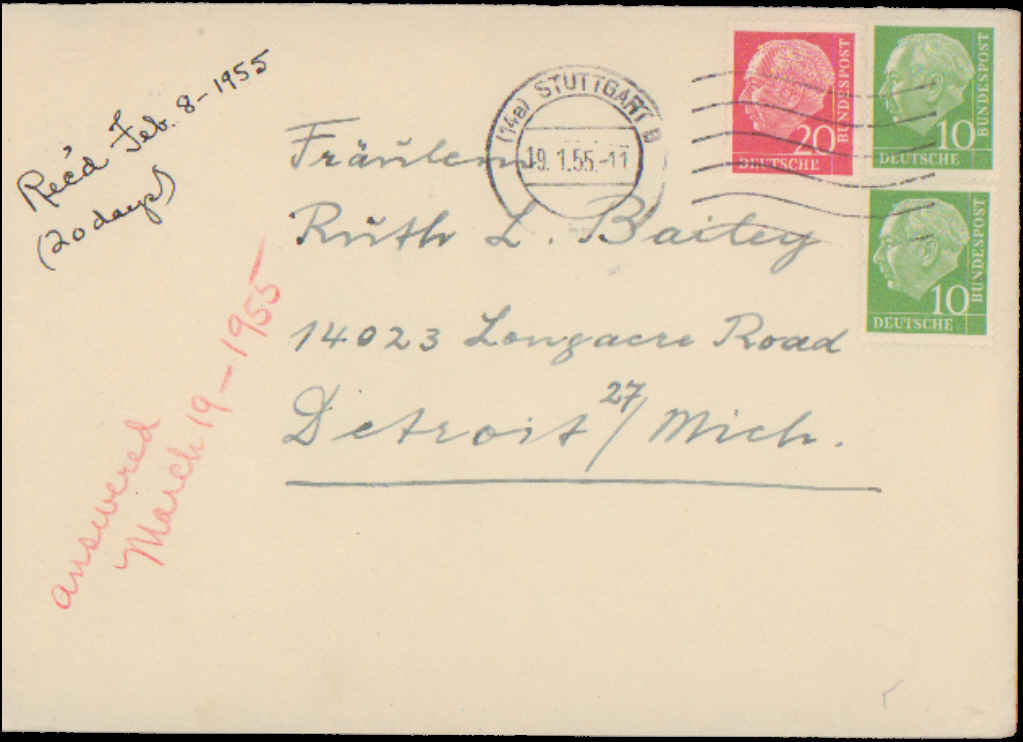 Rec'd Feb. 8-1955
(20 days)
answered
March 19-1955
(14a) STUTTGART 9
19. 1.55.-11
20
DEUTSCHE
BUNDESPOST
10
DEUTSCHE
BUNDESPOST
10
DEUTSCHE
BUNDESPOST
Fräulein
Ruth L. Bailey
14023 Longacre Road
Detroit 27/ Mich.